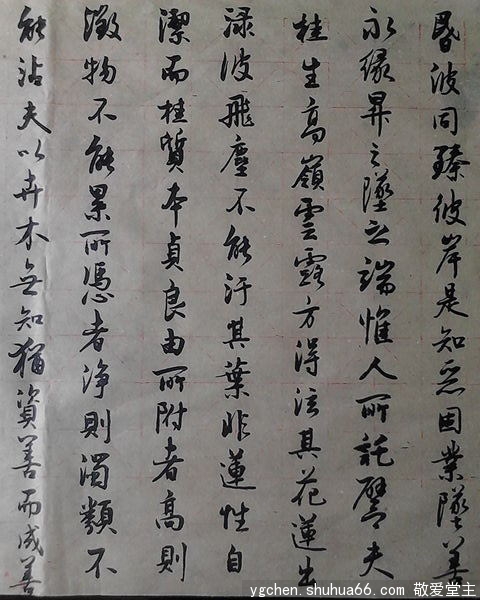 昏波同臻彼岸是知惡因業墜善
以緣昇々墜之端惟人所託譬夫
桂生高嶺雲露方得泫其花蓮出
渌波飛塵不能汙其葉非蓮性自
潔而桂質本貞良由所附者高則
微物不能累所憑者淨則濁類不
能沾夫以卉木無知猶資善而成善
ygchen.shuhua66.com 敬爱堂主